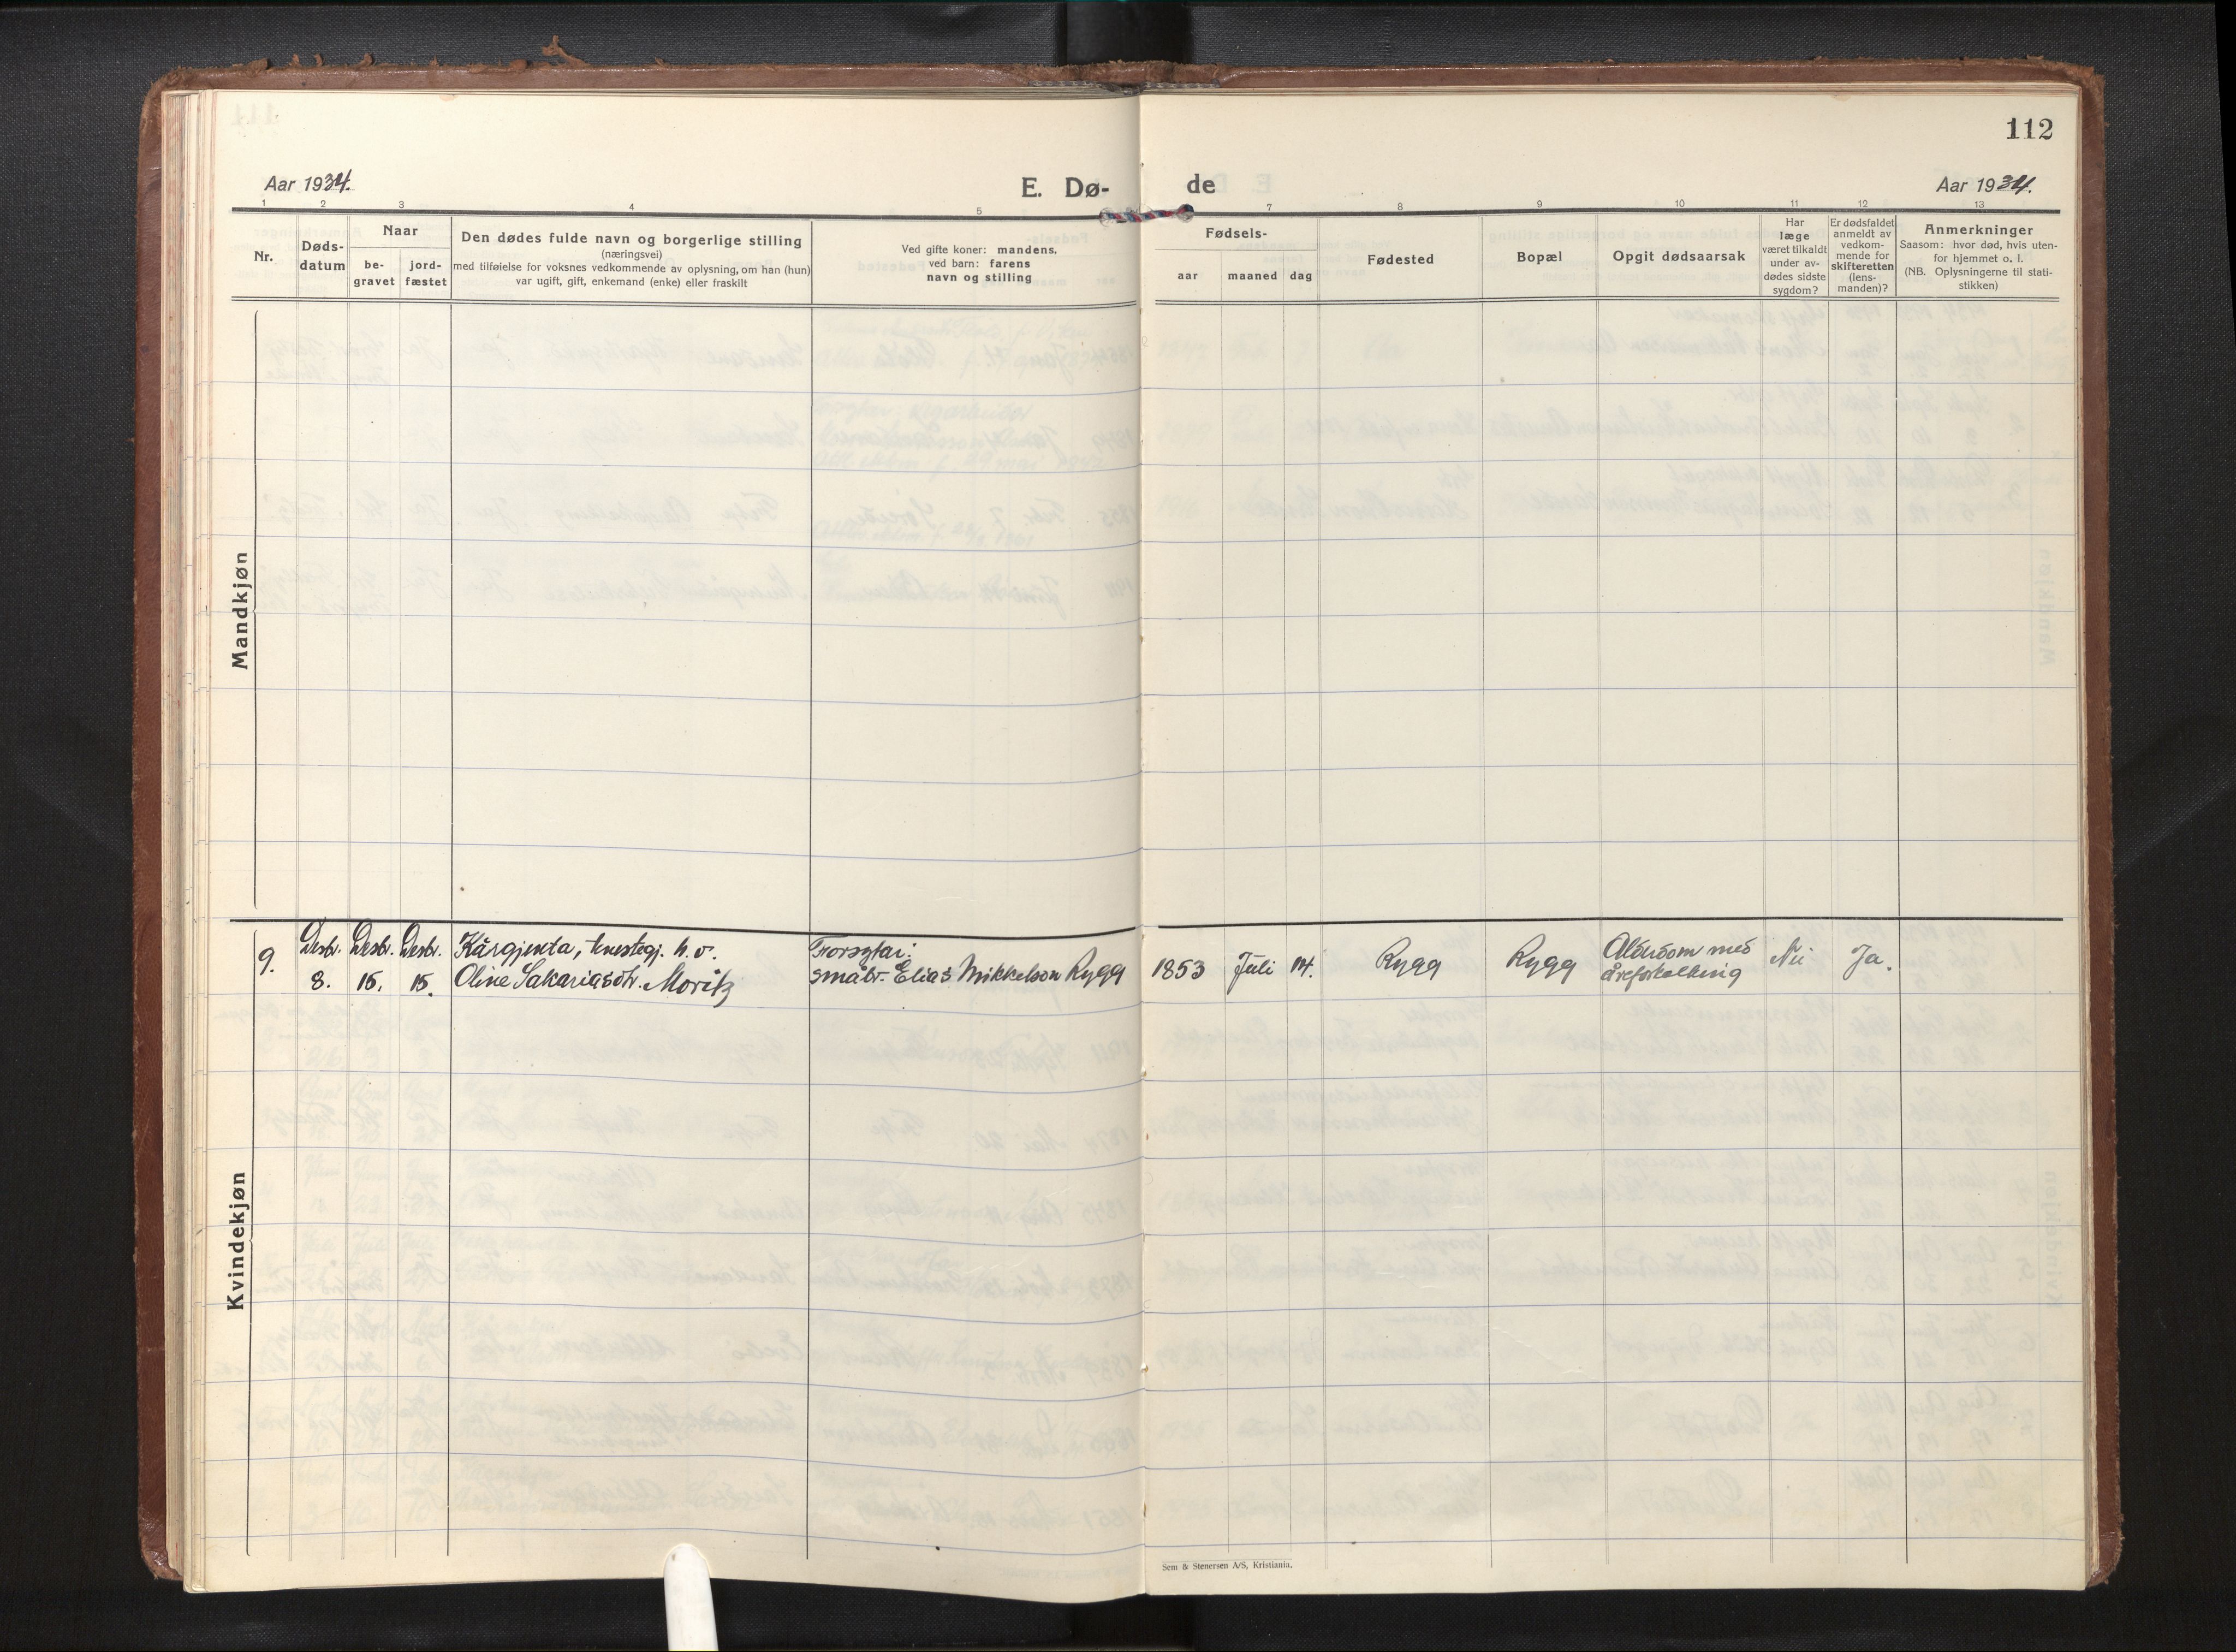 112
Aar 1934.
E. Dø-
de
Aar 1934.
1 2 3 4 5 7 8 9 10 11 12 13
Nr.
Døds-
datum
Naar
be-
gravet
jord-
fæstet
Den dødes fulde navn og borgerlige stilling
(næringsvei)
med tilføielse for voksnes vedkommende av oplysning, om han (hun)
var ugift, gift, enkemand (enke) eller fraskilt
Ved gifte koner: mandens,
ved barn: farens
navn og stilling
Fødsels-
aar maaned dag
Fødested
Bopæl
Opgit dødsaarsak
Har
læge
været tilkaldt
under av-
dødes sidste
sygdom?
Er dødsfaldet
anmeldt av
vedkom-
mende for
skifteretten
(lens-
manden)?
Anmerkninger
Saasom: hvor død, hvis uten-
for hjemmet o. l.
(NB. Oplysningerne til stati-
stikken)
Mandkjøn
9.
Desbr. Desbr. Desbr. Kårgjenta, tenestegj. h. v. Forsytar:
8. 15. 15. Oline Sakariasdtr. Moritz småbr. Elias Mikkelson Rygg 1853 Juli 14. Rygg Rygg Alderdom med
åreforkalking
Nei Ja.
Kvindekjøn
Sem & Stenersen A/S, Kristiania.